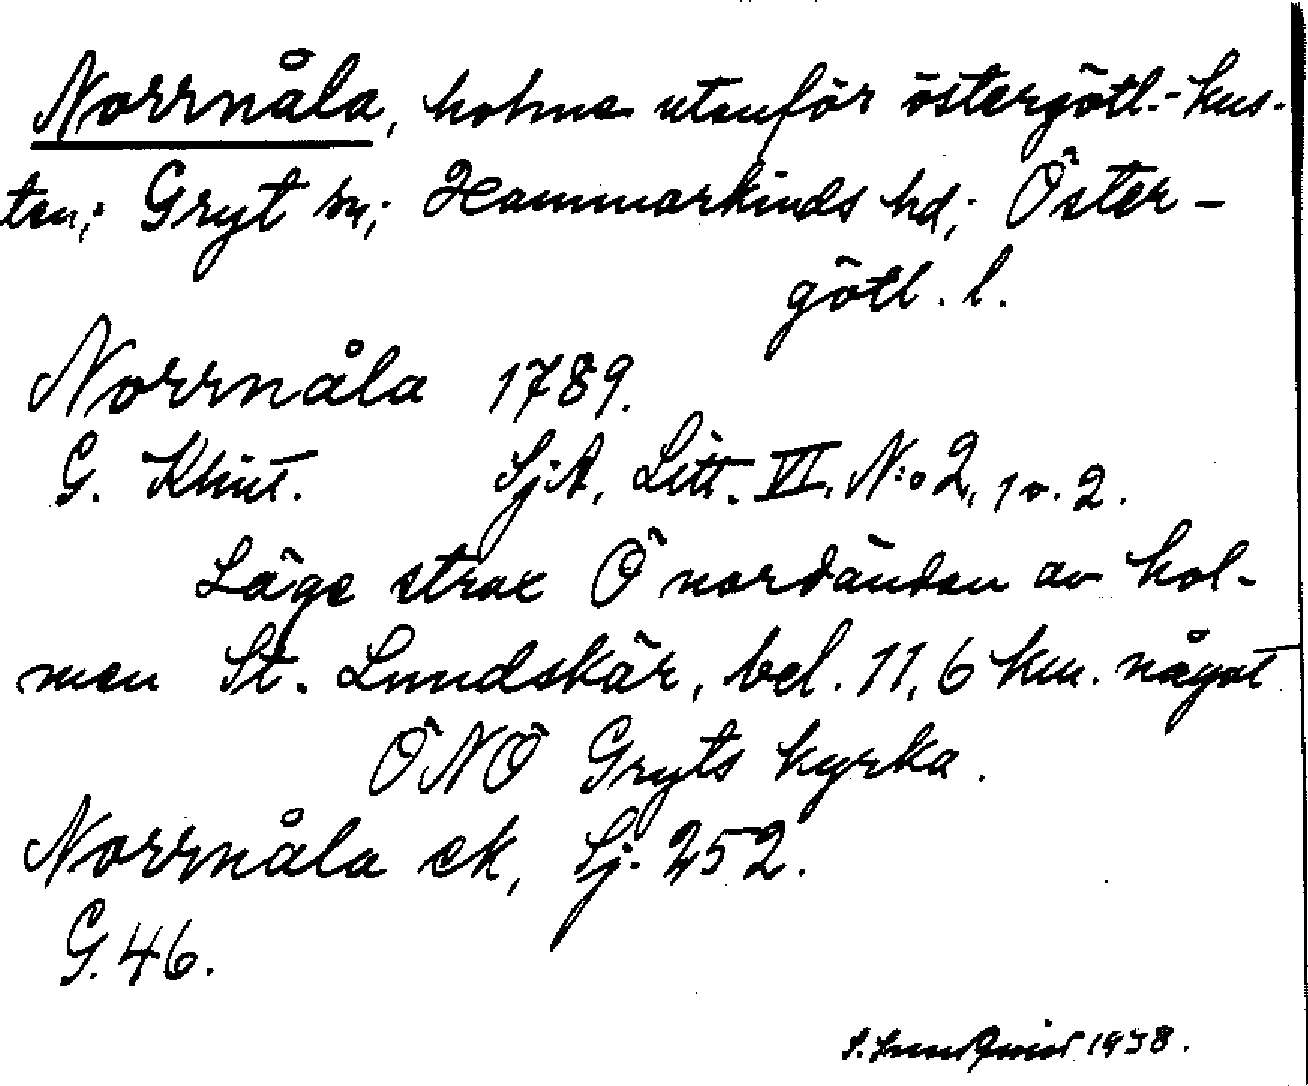 Norrnåla, holme utanför östergötl.-kus-
ten; Gryt sn; Hammarkinds hd; Öster-
götl. l.
Norrnåla 1789.
G. Klint. SjA, Litt. VI, N:o 2, 1 o. 2.
Läge strax Ö nordändan av hol-
men St. Lundskär, bel. 11,6 km. något
ÖNÖ Gryts kyrka.
Norrnåla ek, Sj. 252.
G. 46.
S. Lundqvist 1938.